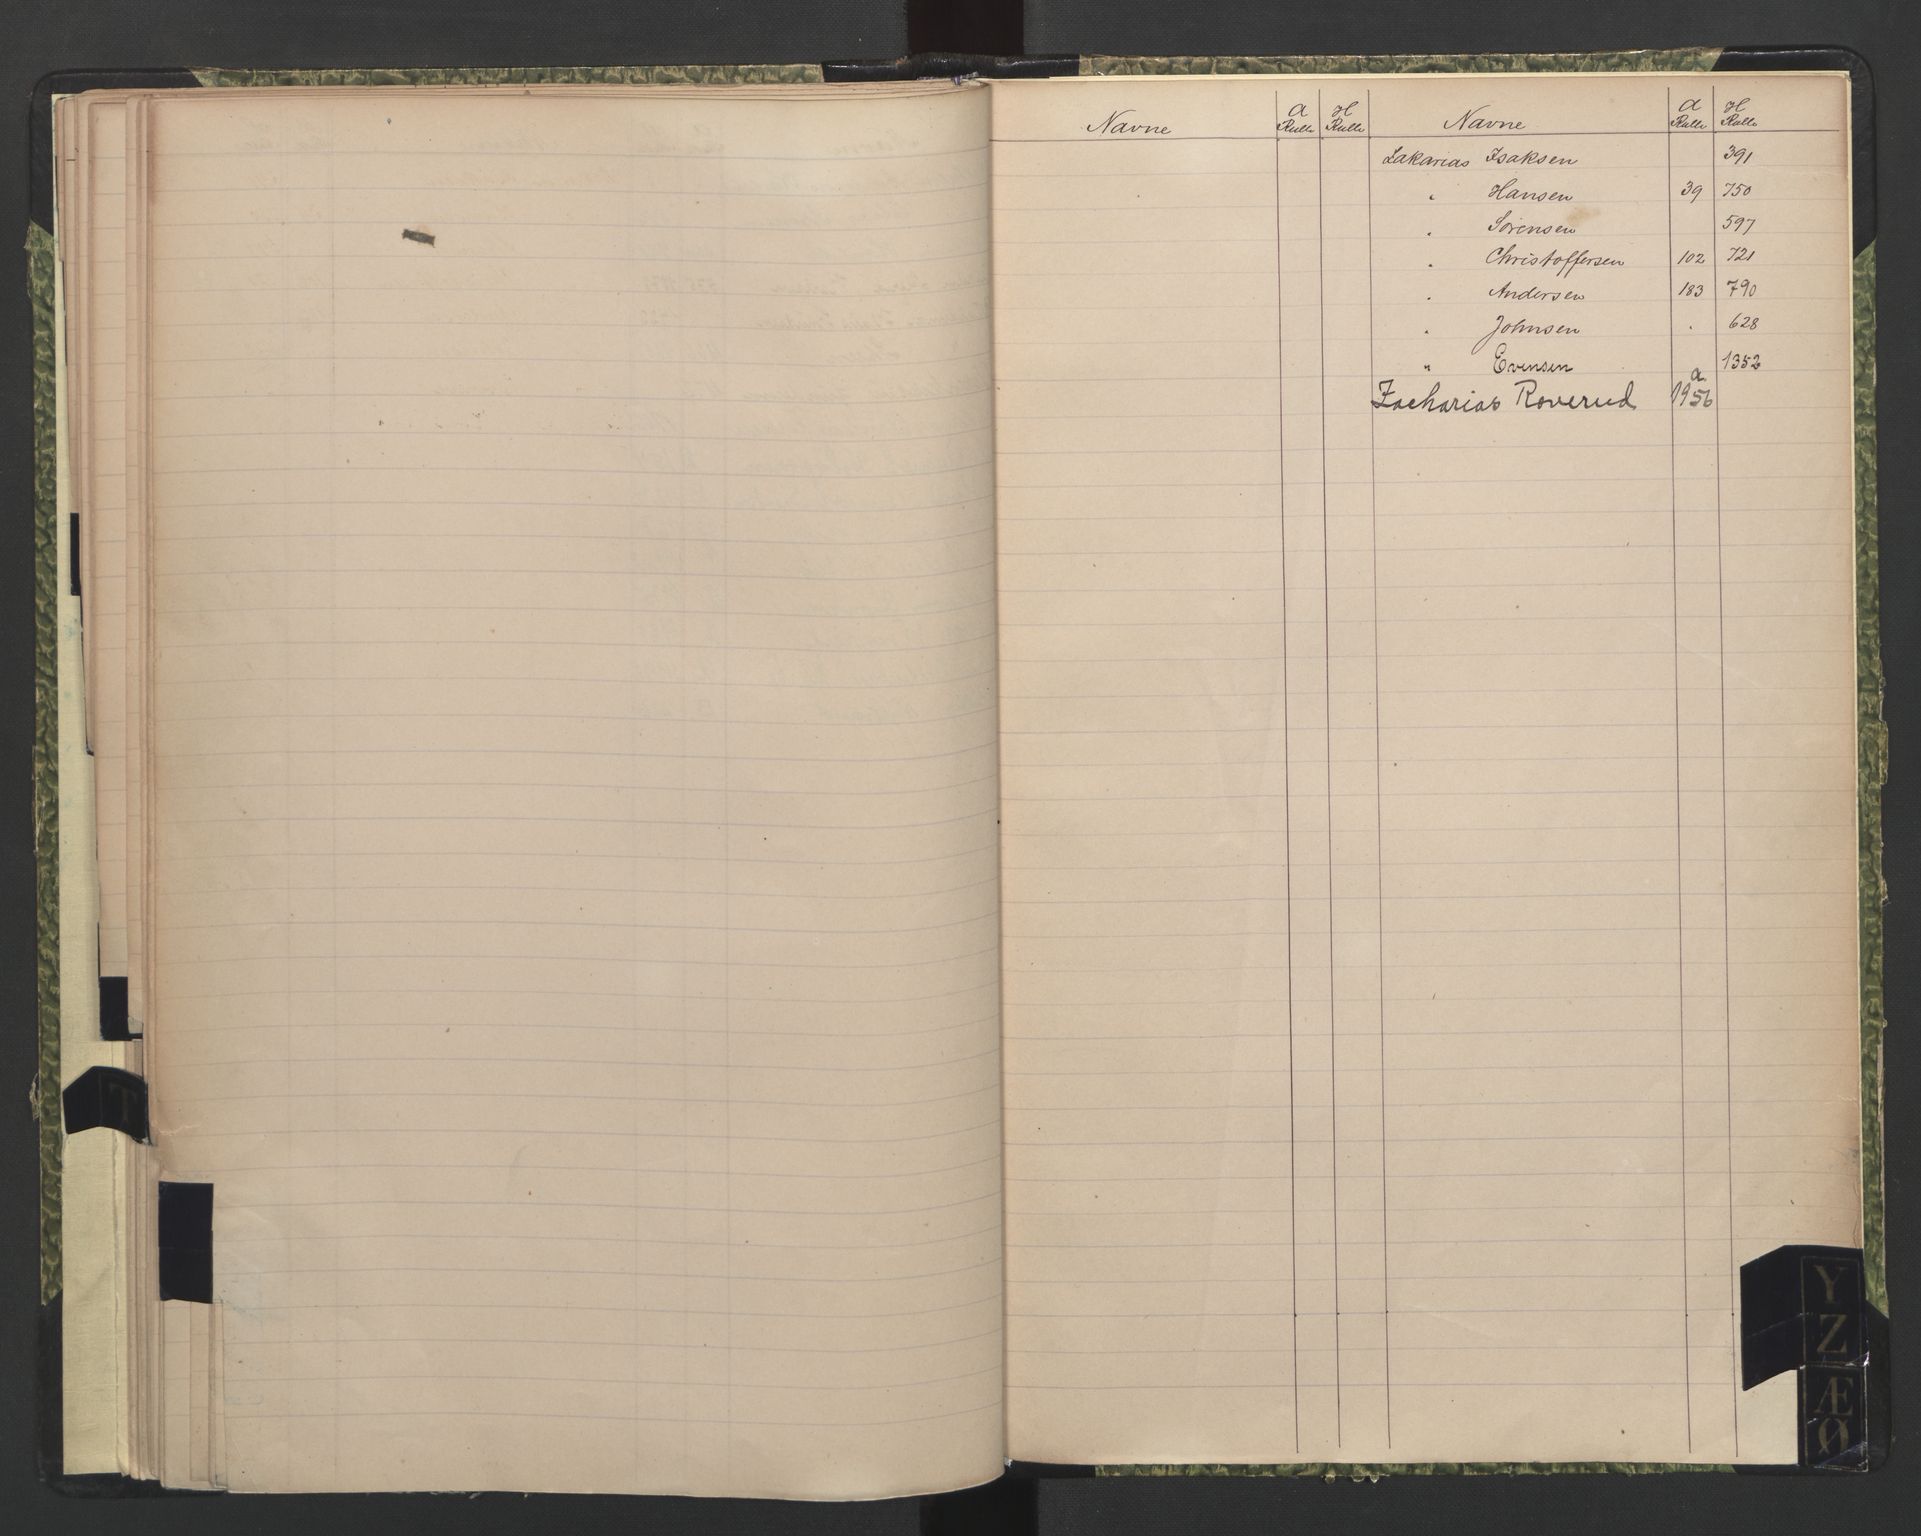 Navne a Rulle H Rulle Navne a Rulle H Rulle
Zakarias Isaksen 391
" Hansen 39 750
" Sørensen 597
" Christoffersen 102 721
" Andersen 183 790
" Johnsen " 628
" Evensen 1352
Zacharias Roverud 1956 a
T
Y
Z
Æ
Ø